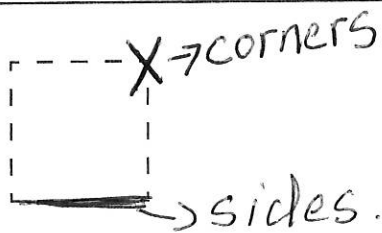 corners
sides.